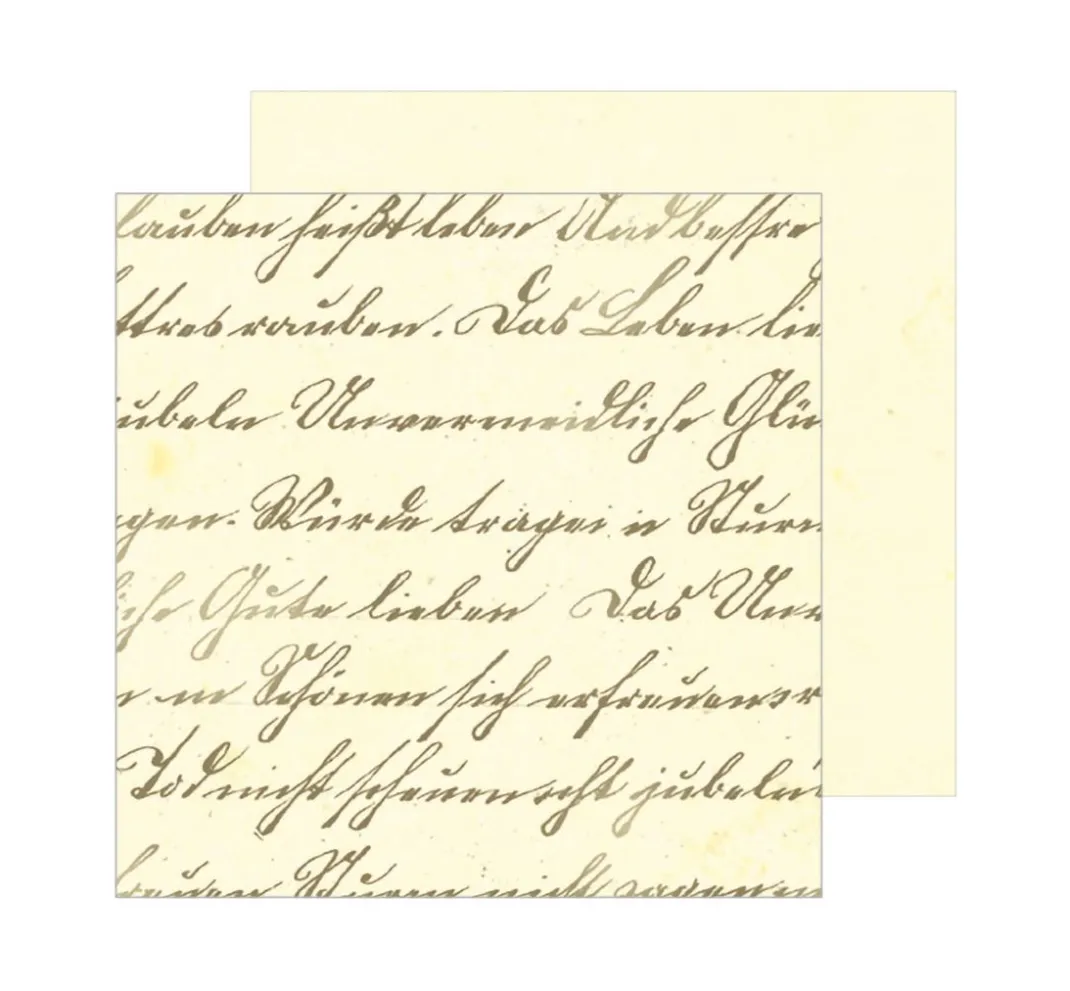 lauben heißt leben Und bessre
ttres rauben. Das Leben lie
ubeln Unvermeidliche Glü
gen. Würde tragen in Stur
iche Gute lieben Das Unv
Schönen sich erfreuen
Tod nicht scheuen cht jubeln
Sturm nicht